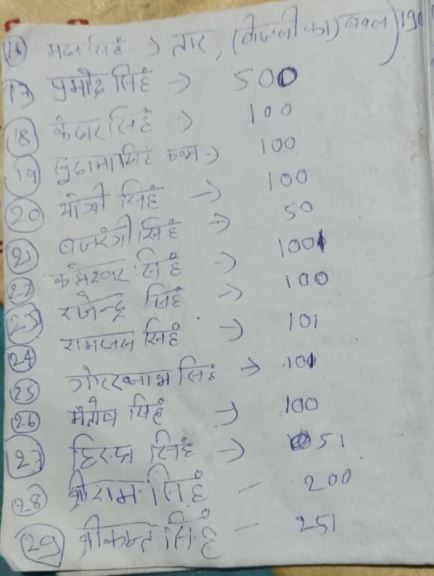 (16) मदन सिंह → तार, (बिजली का) बक्ल) 190
(17) प्रमोद सिंह → 500
(18) केदार सिंह → 100
(19) सुदामा सिंह → 100
(20) योगी सिंह → 100
(21) बजरंगी सिंह → 50
(22) कमेश्वर सिंह → 1001
(23) राजेन्द्र सिंह → 100
(24) रामजस सिंह → 101
(25) गोरखनाथ सिंह → 101
(26) संतोष सिंह → 100
(27) सिंह → 51
(28) श्रीराम सिंह – 200
(29) श्रीकान्त सिंह – 251